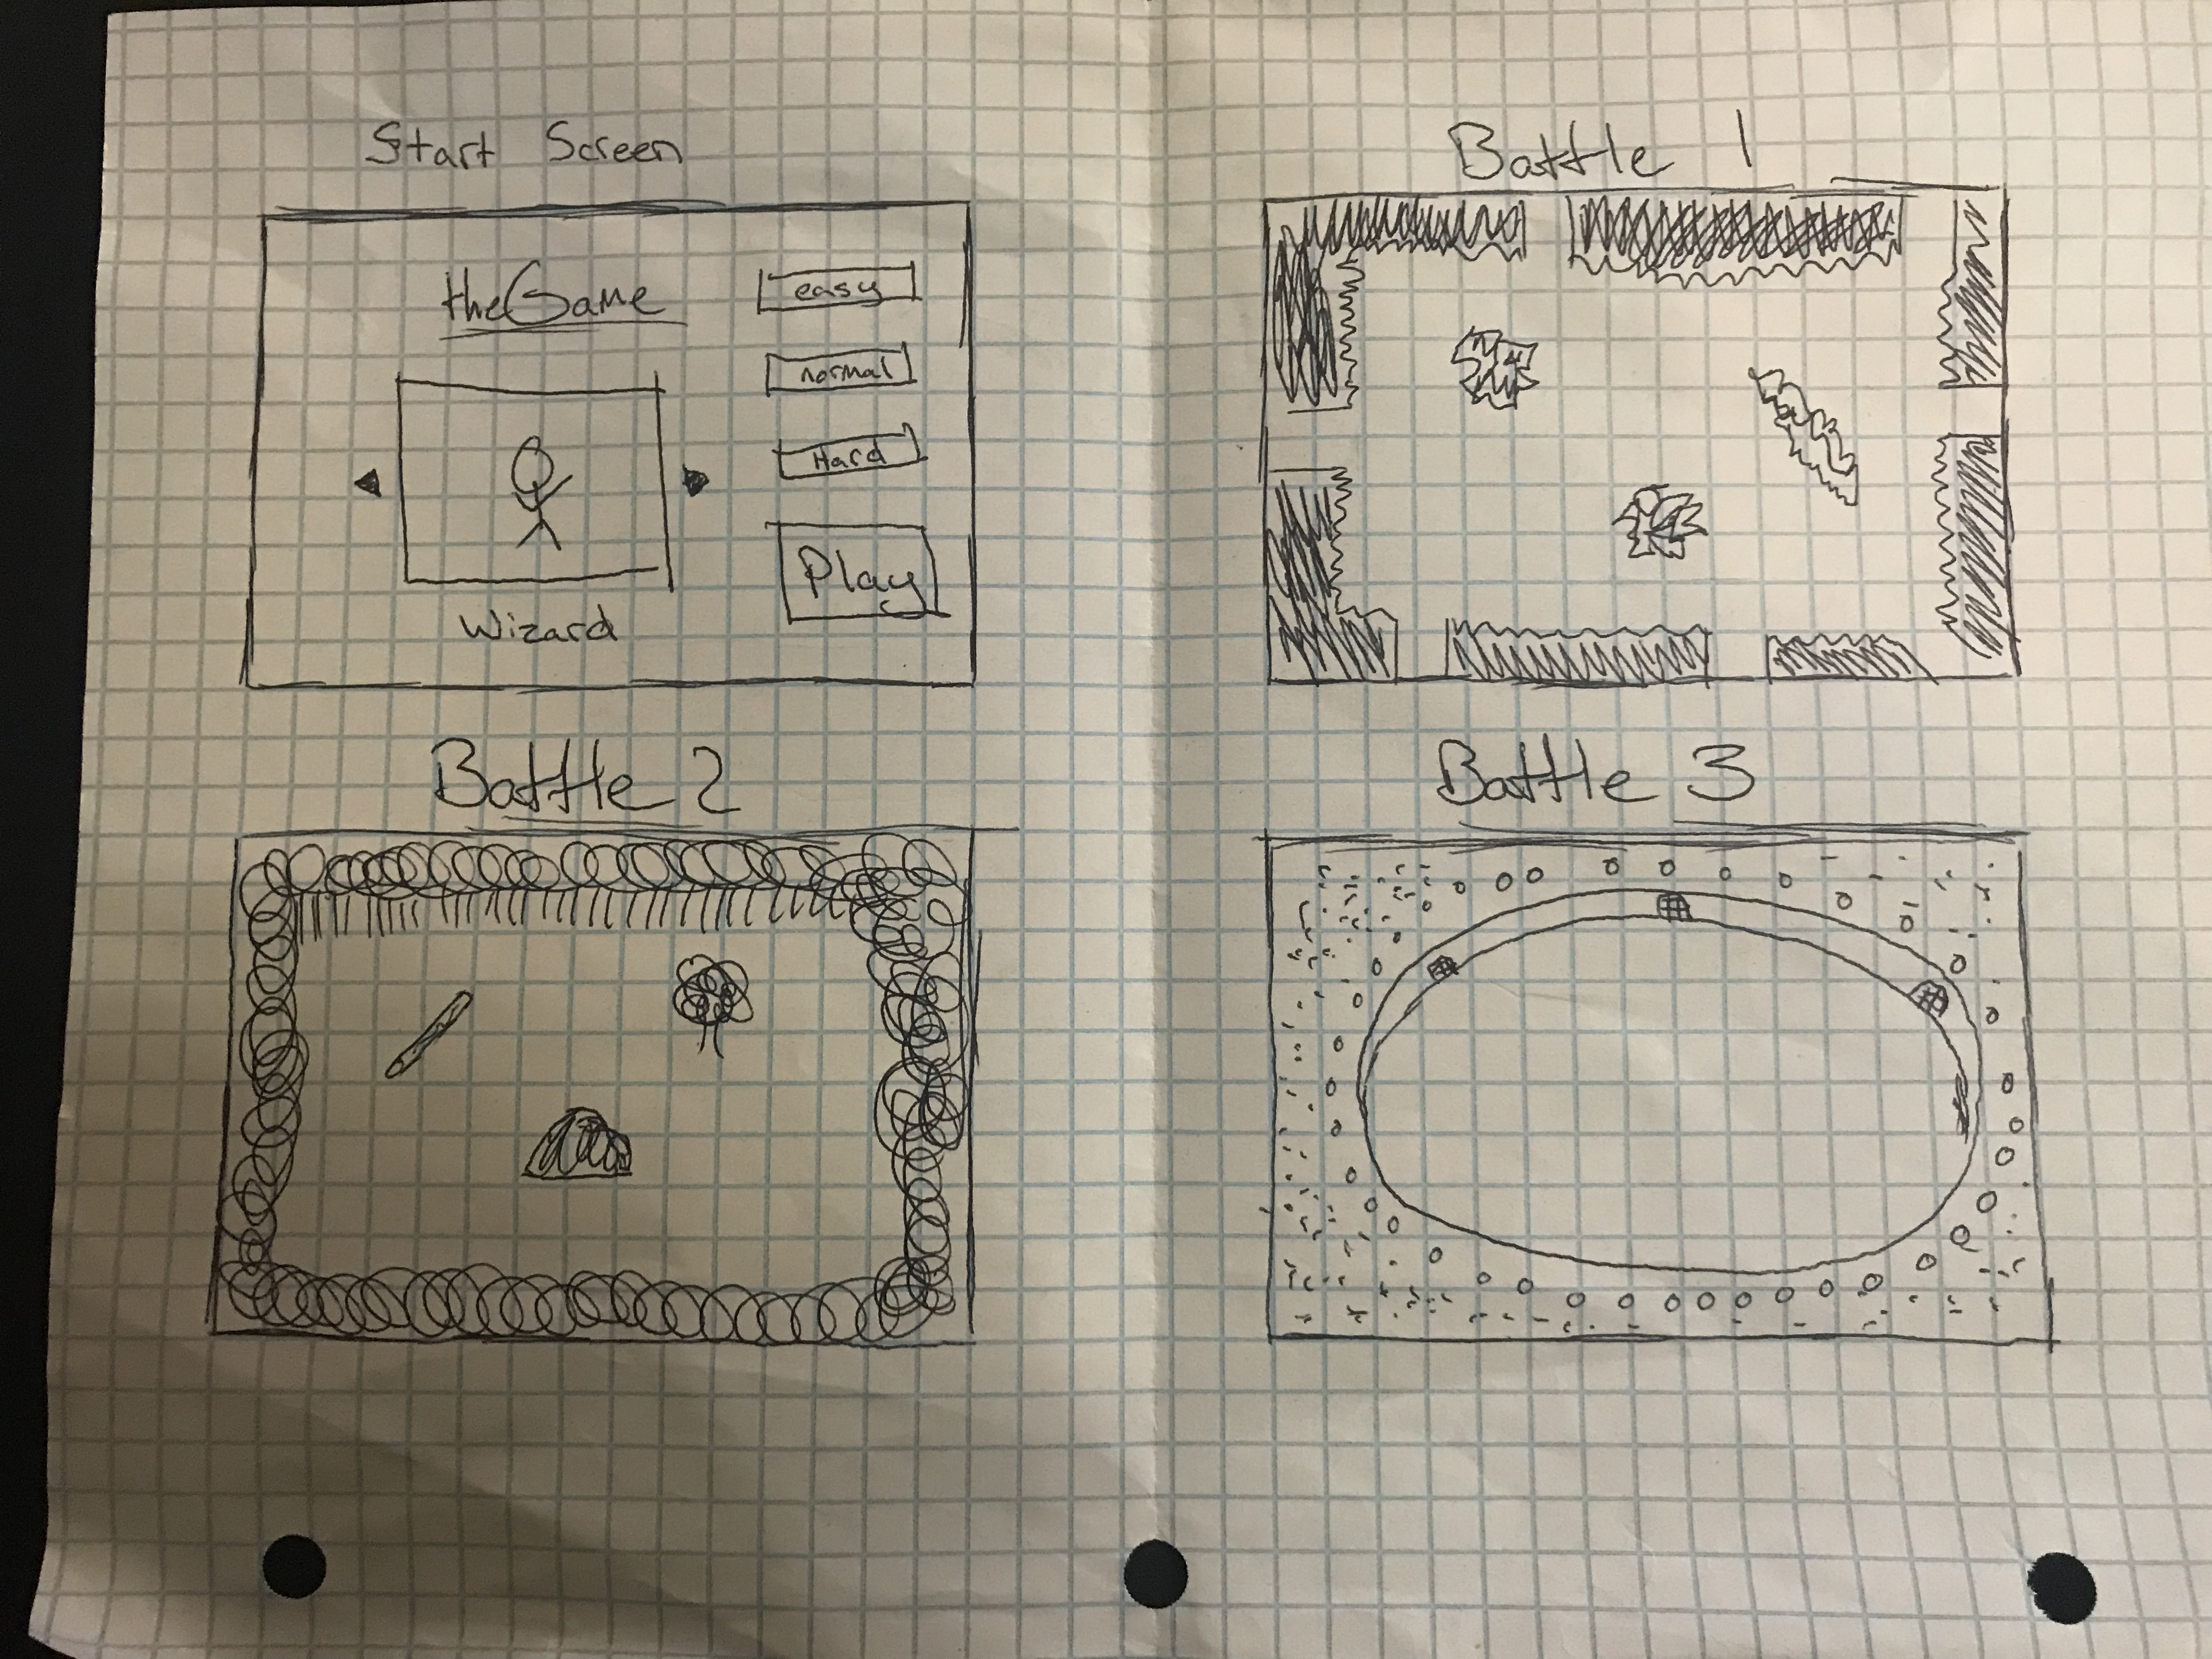 Start Screen
theGame
easy
normal
Hard
Play
Wizard
Battle 1
Battle 2
Battle 3